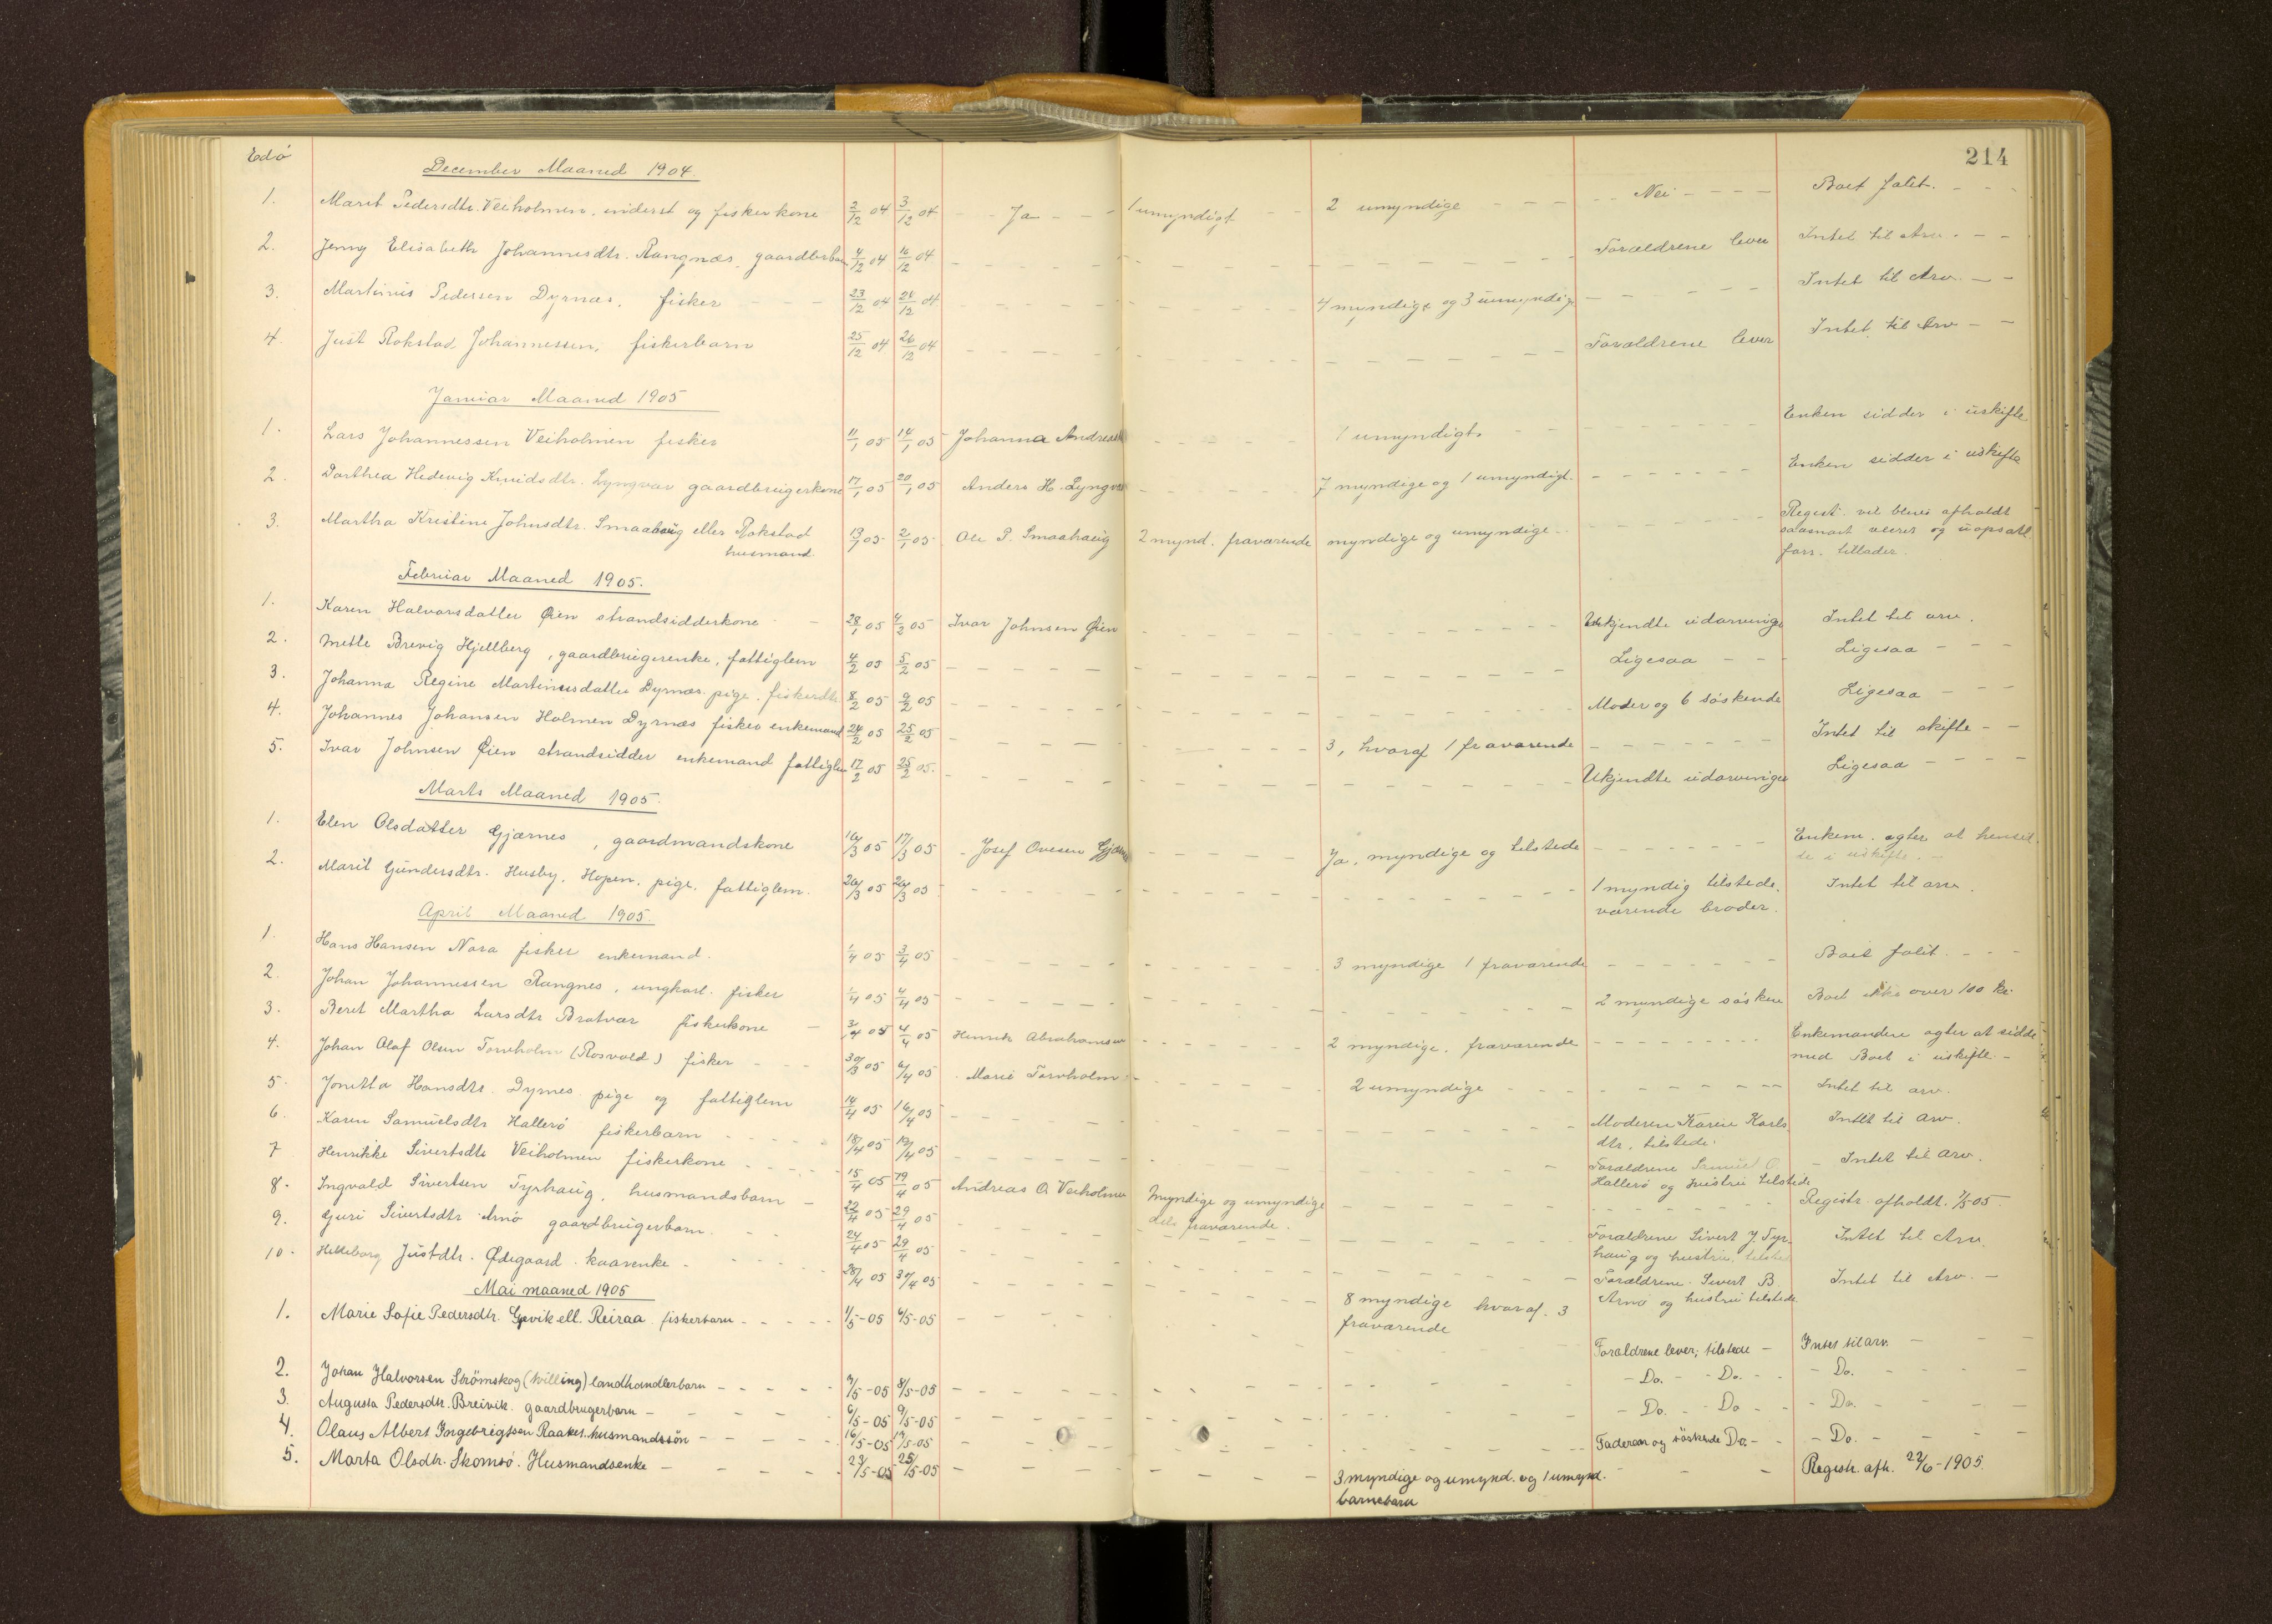 214
Edö
December Maaned 1904
1. Marit Pedersdtr. Veiholmen, inderst og fiskerkone 2/12 04 3/12 04 - - Ja - - - 1 umyndigt - - 2 umyndige - - - - - Nei - - - - Boet falit. - - -
2. Jenny Elisabeth Johannesdtr. Rangnæs, 4/12 04 16/12 04 - - - - Forældrene lever Intet til Arv. - -
3. Martinus Pedersen Dyrnæs, fisker - - - 23/12 04 24/12 04 - - - - 4 myndige og 3 umyndige - - - - Intet til Arv. - -
4. Just Rokstad Johannessen, fiskerbarn 25/12 04 26/12 04 - - - - Forældrene lever Intet til Arv - -
Januar Maaned 1905
1. Lars Johannessen Veiholmen fisker 11/1 05 14/1 05 Johanna - - - - 1 umyndigt. - - - - Enken sidder i uskifte
2. Dorthea Hedevig Knudsdtr. Lyngvær gaardbrugerkone 17/1 05 20/1 05 Anders H. Lyngvær - - - - 7 myndige og 1 umyndigt. - - - - Enken sidder i uskifte
3. Martha Kristine Johnsdtr. Smaahaug eller Rokstad 13/1 05 2/1 05 Ole P. Smaahaug 2 mynd. fraværende myndige og umyndige - - - - Regist. vil blive afholdt
husmand saasnart veiret og
forr. tillader.
Februar Maaned 1905.
1. Karen Halvorsdatter Øien strandsidderkone - - 28/1 05 4/2 05 Ivar Johnsen Øien - - - - Ukjendte udarvinger Intet til arv.
2. Mette Brevig Hjellberg, gaardbrugerenke, fattiglem 4/2 05 5/2 05 - - - - Ligesaa - - - Ligesaa - - -
3. Johanna Regine Martinusdatter Dyrnæs pige, fiskerdtr. 8/2 05 9/2 05 - - - - Moder og 6 söskende Ligesaa - - -
4. Johannes Johansen Holmen Dyrnæs fisker enkemand 24/2 05 25/2 05 - - - - 3, hvoraf 1 fraværende - - - - Intet til skifte - -
5. Ivar Johnsen Øien strandsidder enkemand fattiglem 17/2 05 25/2 05. - - - - Ukjendte udarvinger Ligesaa - - - -
Marts Maaned 1905.
1. Elen Olsdatter Gjærnes, gaardmandskone 16/3 05 17/3 05 - Josef Ovesen Gjærnes - - - - Ja, myndige og tilstede - - - - Enkem. agter at hensid-
de i uskifte. -
2. Marit Gundersdtr. Husby, Hopen, pige, fattiglem. 26/3 05 26/3 05 - - - - 1 myndig tilstede- Intet til arv.
værende broder.
April Maaned 1905.
1. Hans Hansen Nora fisker enkemand. 1/4 05 3/4 05 - - - - 3 myndige 1 fraværende - - - - Boet falit. - - -
2. Johan Johannessen Rangnes, ungkarl. fisker 1/4 05 4/4 05 - - - - 2 myndige Boet ikke over 100 kr.
3. Beret Martha Larsdtr Bratvær fiskerkone - 3/4 05 4/4 05 Henrik Abrahamsen - - - - 2 myndige, fraværende - - - - Enkemanden agter at sidde
med Boet i uskifte -
4. Johan Olaf Olsen Tornholm (Rosvold) fisker - - - 30/3 05 6/4 05 Marie Tornholm - - - - 2 umyndige - - - - Intet til arv.
5. Jonetta Hansdtr. Dyrnes pige og fattiglem 14/4 05 16/4 05 - - - - Moderen Karls Intet til arv.
dtr. tilstede.
6. Karen Samuelsdtr Hallerö fiskerbarn - - - - 18/4 05 19/4 05 - - - - Forældrene Samuel O. Intet til arv.
Hallerö og hustru tilstede
7 Henrikke Sivertsdtr Veiholmen fiskerkone - - - - 15/4 05 19/4 05 Andreas O Veiholmen Myndige og umyndige - - - - Registr. afholdt. 7/5-05
dels fraværende.
8. Ingvald Sivertsen Tyrhaug, husmandsbarn - 22/4 05 29/4 05 - - - - Forældrene Sivert J. Tyr- Intet til Arv.
haug og hustru
9. Guri Sivertsdtr Arnö gaardbrugerbarn. - - 24/4 05 29/4 05 - - - - Forældrene Sivert B. Intet til Arv. -
Arnö og hustru tilstede
10. Justdtr. Ødegaard kaarenke - - - - 28/4 05 30/4 05 - - - - 8 myndige hvoraf 3
fraværende
Mai maaned 1905
1. Marie Sofie Pedersdtr. Gjevik ell. Reiraa fiskerbarn - - - - - 1/5-05 6/5-05 - - - - Forældrene lever, tilstede - Intet til arv. - - -
2. Johan Halvorsen Strömskog (tvilling) landhandlerbarn - - - - - 7/5-05 8/5-05 - - - - - Do. - - Do. - - - Do. - - - -
3. Augusta Pedersdtr. Breivik. gaardbrugerbarn - - - - - 6/5-05 9/5-05 - - - - - Do. - - Do - - - Do. - - -
4. Olaus Albert Ingebrigtsen Raaket. husmandssön - - - - - 16/5-05 19/5-05 - - - - Faderen og söskende Do. - - - Do. - - - -
5. Marta Olsdtr. Skomsö. Husmandsenke - - - - 23/5-05 25/5-05 - - - - 3 myndige og umynd. og 1 umynd. - - - Registr. afh. 22/6-1905.
barnebarn